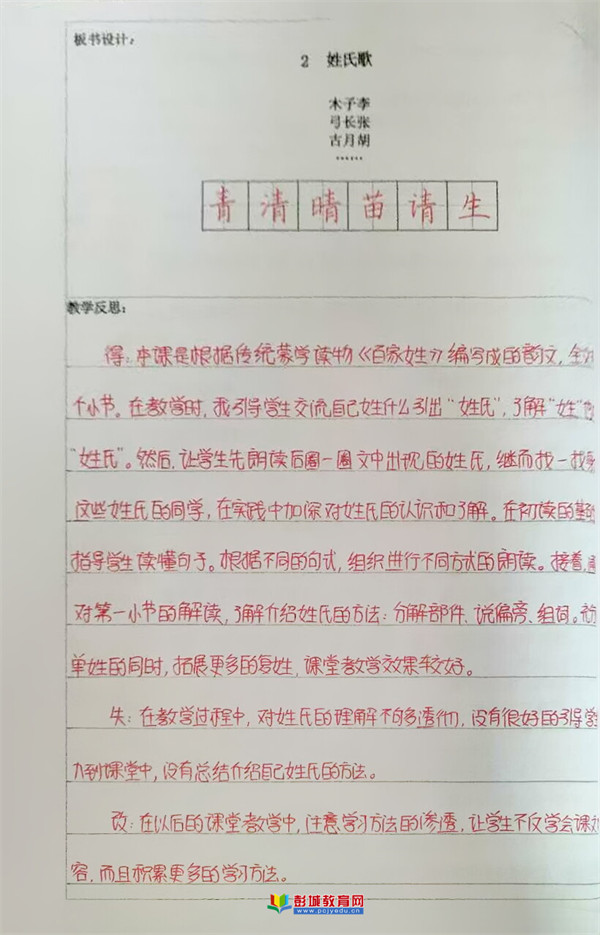 板书设计：
2 姓氏歌
木子李
弓长张
古月胡
……
青 清 晴 苗 请 生
教学反思：
得：本课是根据传统蒙学读物《百家姓》编写成的韵文，全
个小节。在教学时，我引导学生交流自己姓什么引出“姓氏”，了解“姓”
“姓氏”。然后，让学生先朗读后圈一圈文中出现的姓氏，继而找一找
这些姓氏的同学，在实践中加深对姓氏的认识和了解。在初读的基
指导学生读懂句子。根据不同的句式，组织进行不同方式的朗读。接着，
对第一小节的解读，了解介绍姓氏的方法：分解部件、说偏旁、组词。
单姓的同时，拓展更多的复姓，课堂教学效果较好。
失：在教学过程中，对姓氏的理解不够透彻，没有很好的引导学
入到课堂中，没有总结介绍自己姓氏的方法。
改：在以后的课堂教学中，注意学习方法的渗透，让学生不仅学会课
容，而且积累更多的学习方法。
彭城教育网
www.pcjyedu.cn